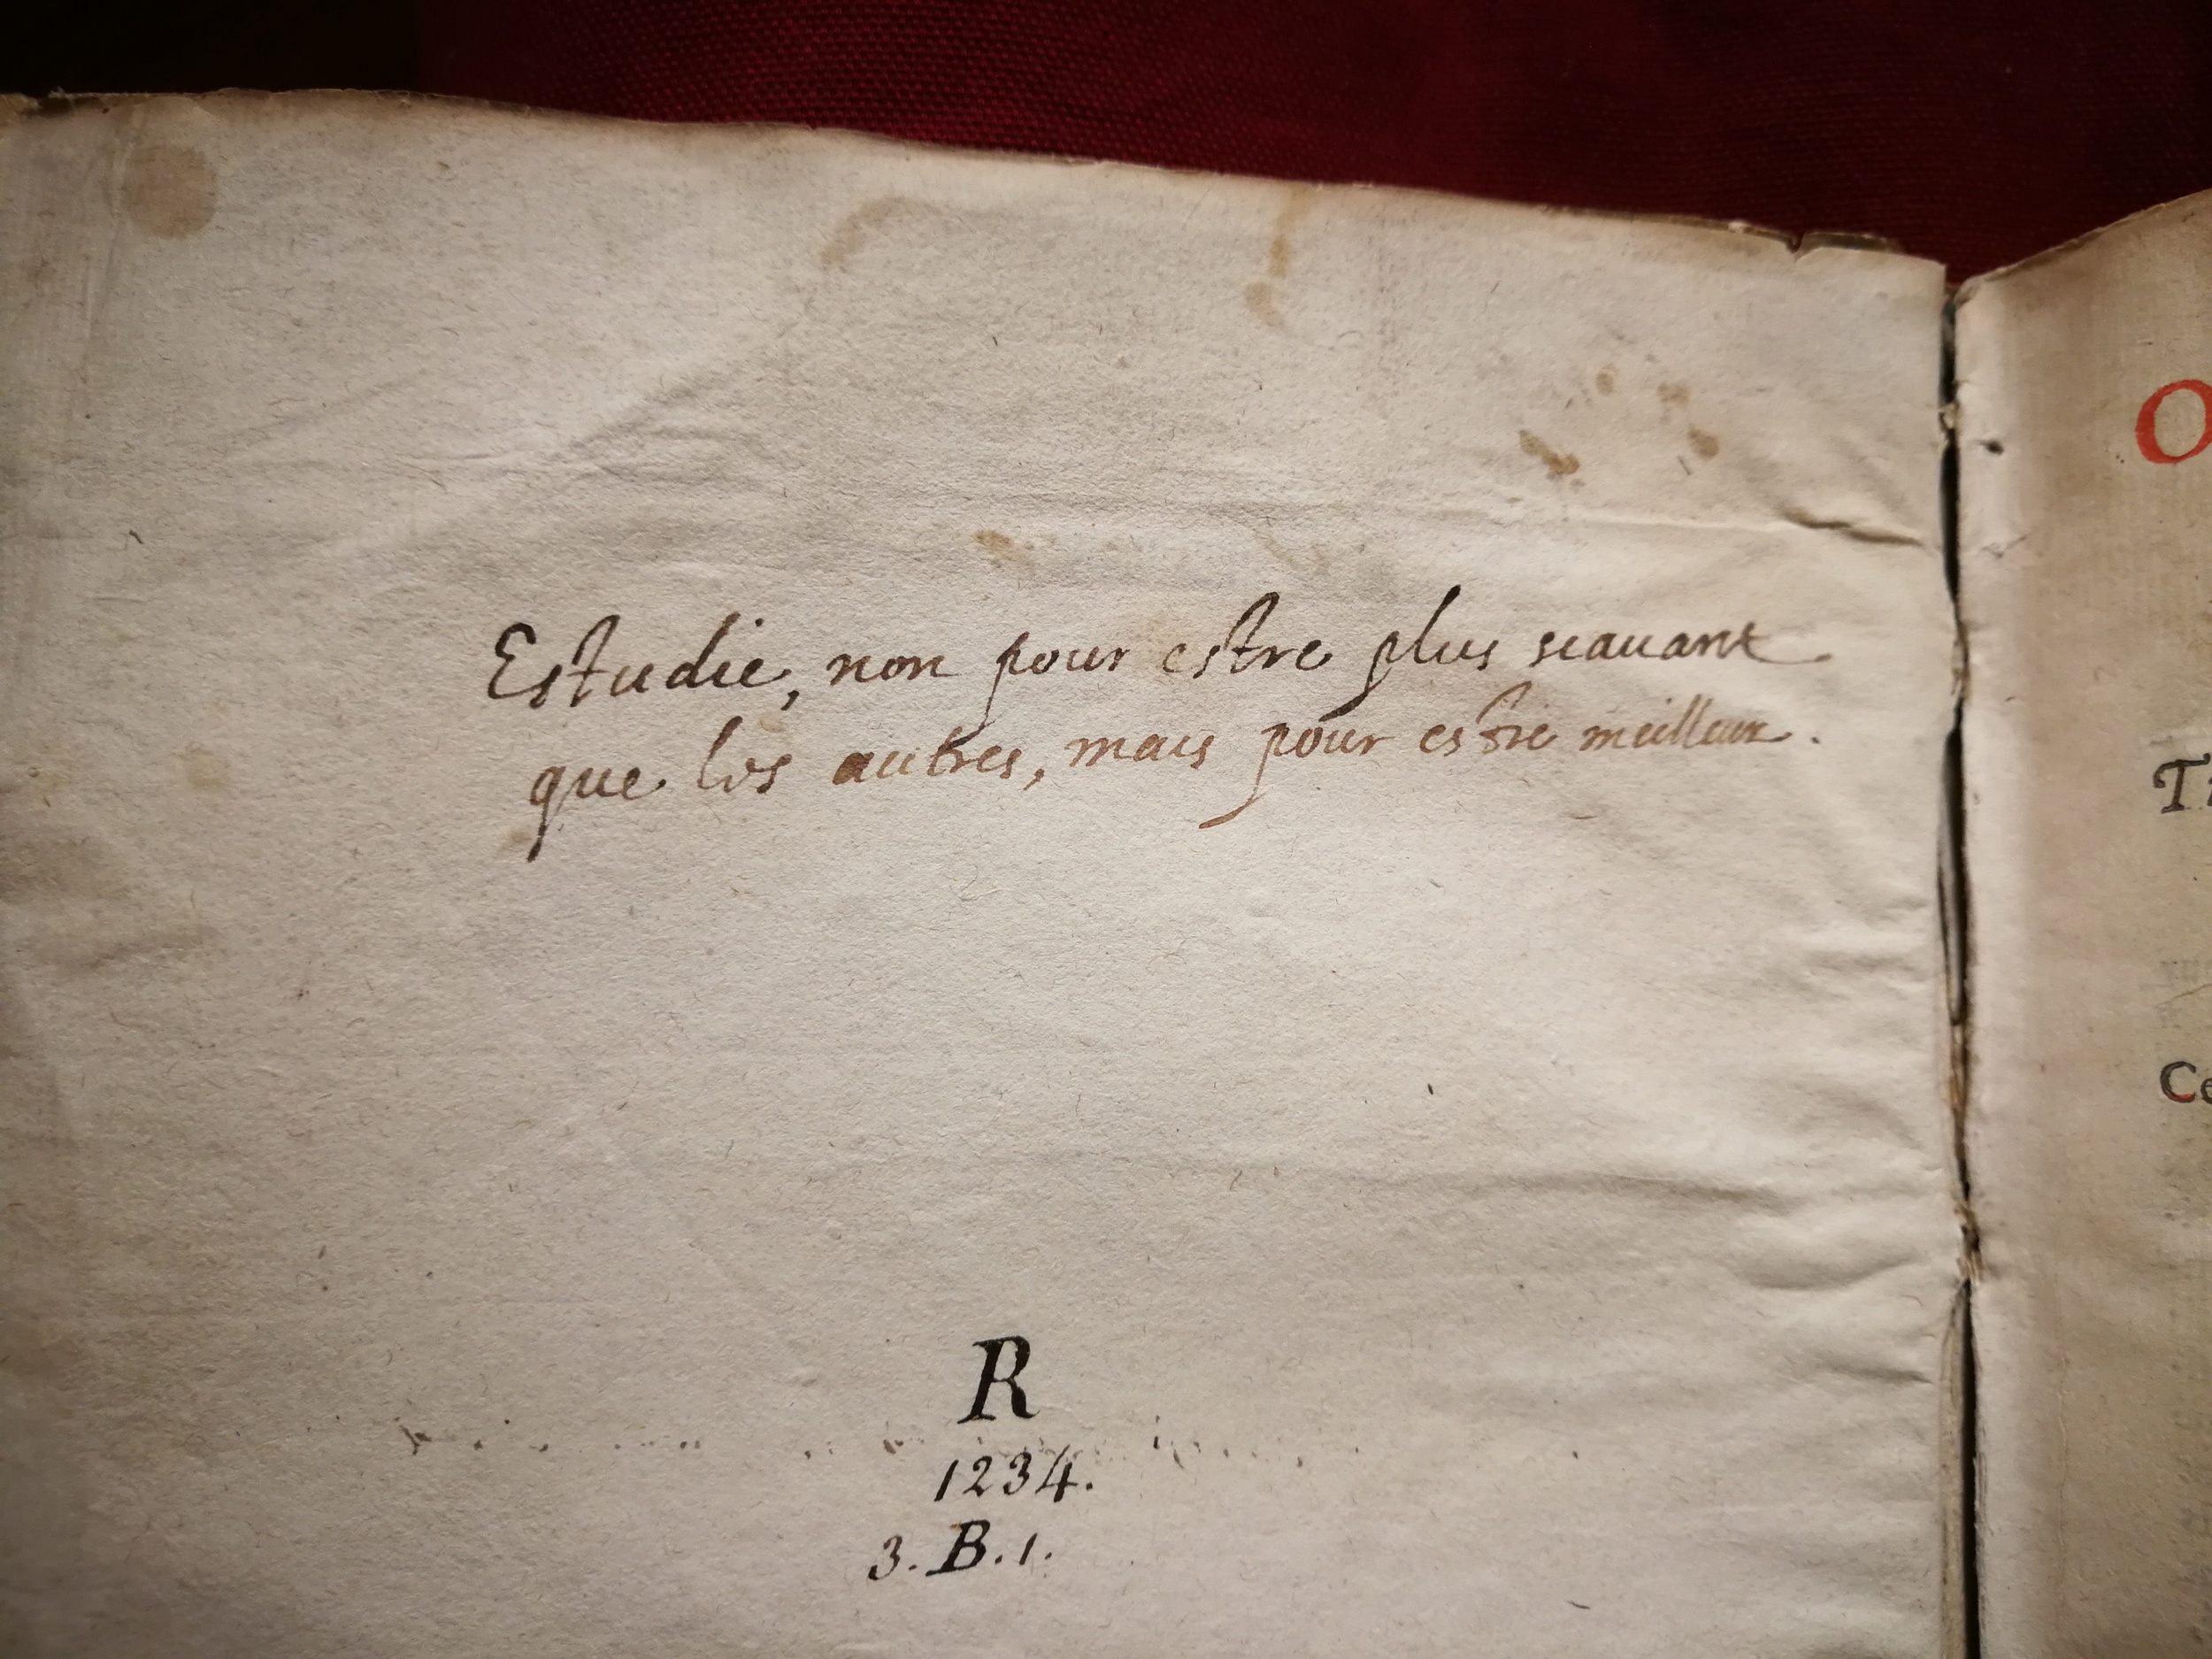 Estudie, non pour estre plus scauant
que les autres, mais pour estre meilleur.
R
1234.
3. B. 1.
O
Ti
Ce